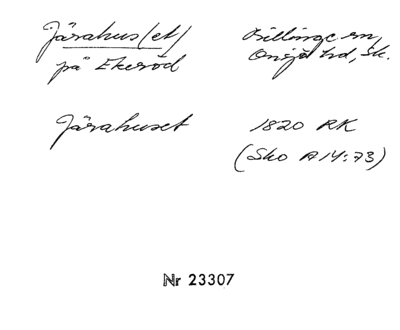 Järahus(et)
på Ekeröd
Billinge sn,
Onsjö hd, Sk.
Järahuset
1820 RK
(Sko A14:73)
Nr 23307